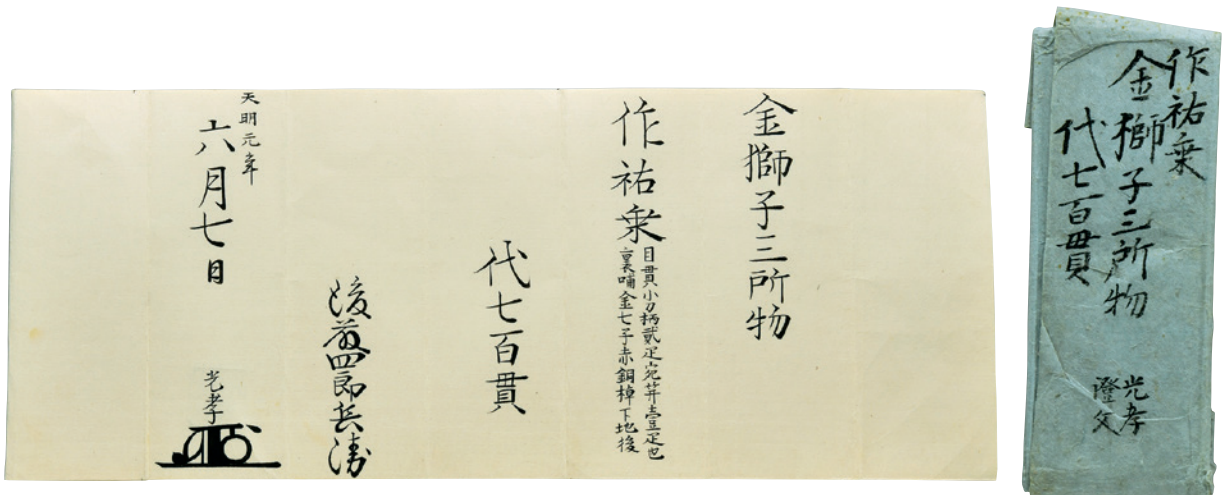 金獅子三所物
作祐乗
目貫小刀柄貳疋宛笄壹疋也
裏哺金七子赤銅棹下地後
代七百貫
後藤四郎兵衛
天明元年
六月七日
光孝
作祐乗
金獅子三所物
代七百貫
光孝
證文